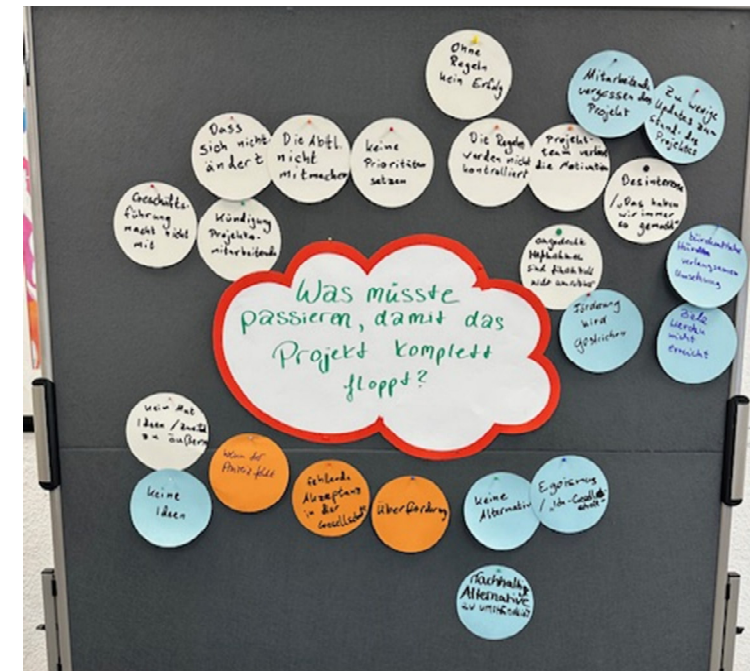 Ohne
Regeln
kein Erfolg
Mitarbeitende
vergessen das
Projekt
Zu wenige
Updates zum
Stand des
Projektes
Dass
sich nichts
ändert
Die Abtl.
nicht
mitmachen
keine
Prioritäten
setzen
Die Regeln
werden nicht
kontrolliert
Projekt-
team verliert
die Motivation
Desinteresse
/„Das haben
wir immer
so gemacht“
Geschäfts-
führung
macht nicht
mit
Kündigung
Projekt-
mitarbeitende
angedachte
Maßnahmen
sind
nicht umsetzbar
bürokratische
Hürden
verlangsamen
Umsetzung
Förderung
wird
gestrichen
Ziele
werden
nicht
erreicht
Was müsste
passieren, damit das
Projekt komplett
floppt?
kein Mut
Ideen /
zu äußern
keine
Ideen
wenn der
fehlt
fehlende
Akzeptanz
in der
Gesellschaft
Überforderung
keine
Alternativen
Egoismus
/„Ich-Gesell-
schaft“
Nachhaltige
Alternative
zu umständlich